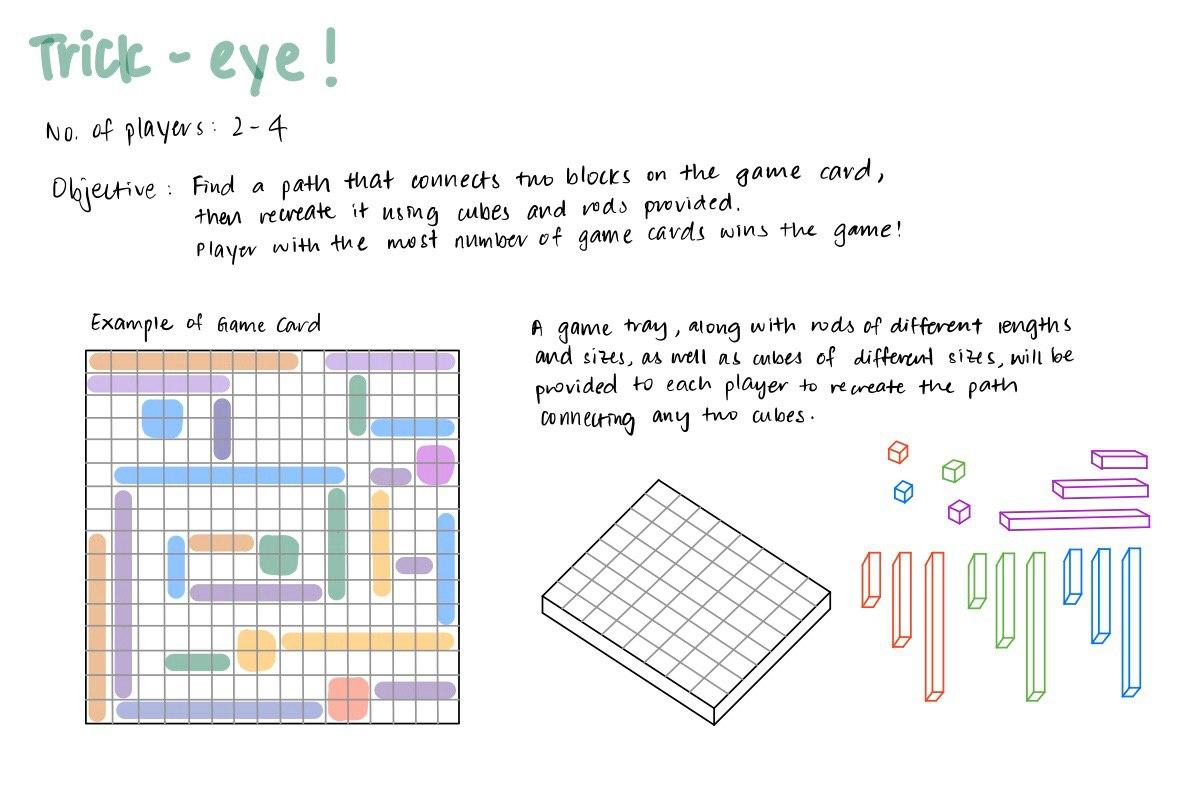 Trick - eye!
No. of players: 2-4
Objective: Find a path that connects two blocks on the game card,
then recreate it using cubes and rods provided.
Player with the most number of game cards wins the game!
Example of Game Card
A game tray, along with rods of different lengths
and sizes, as well as cubes of different sizes, will be
provided to each player to recreate the path
connecting any two cubes.